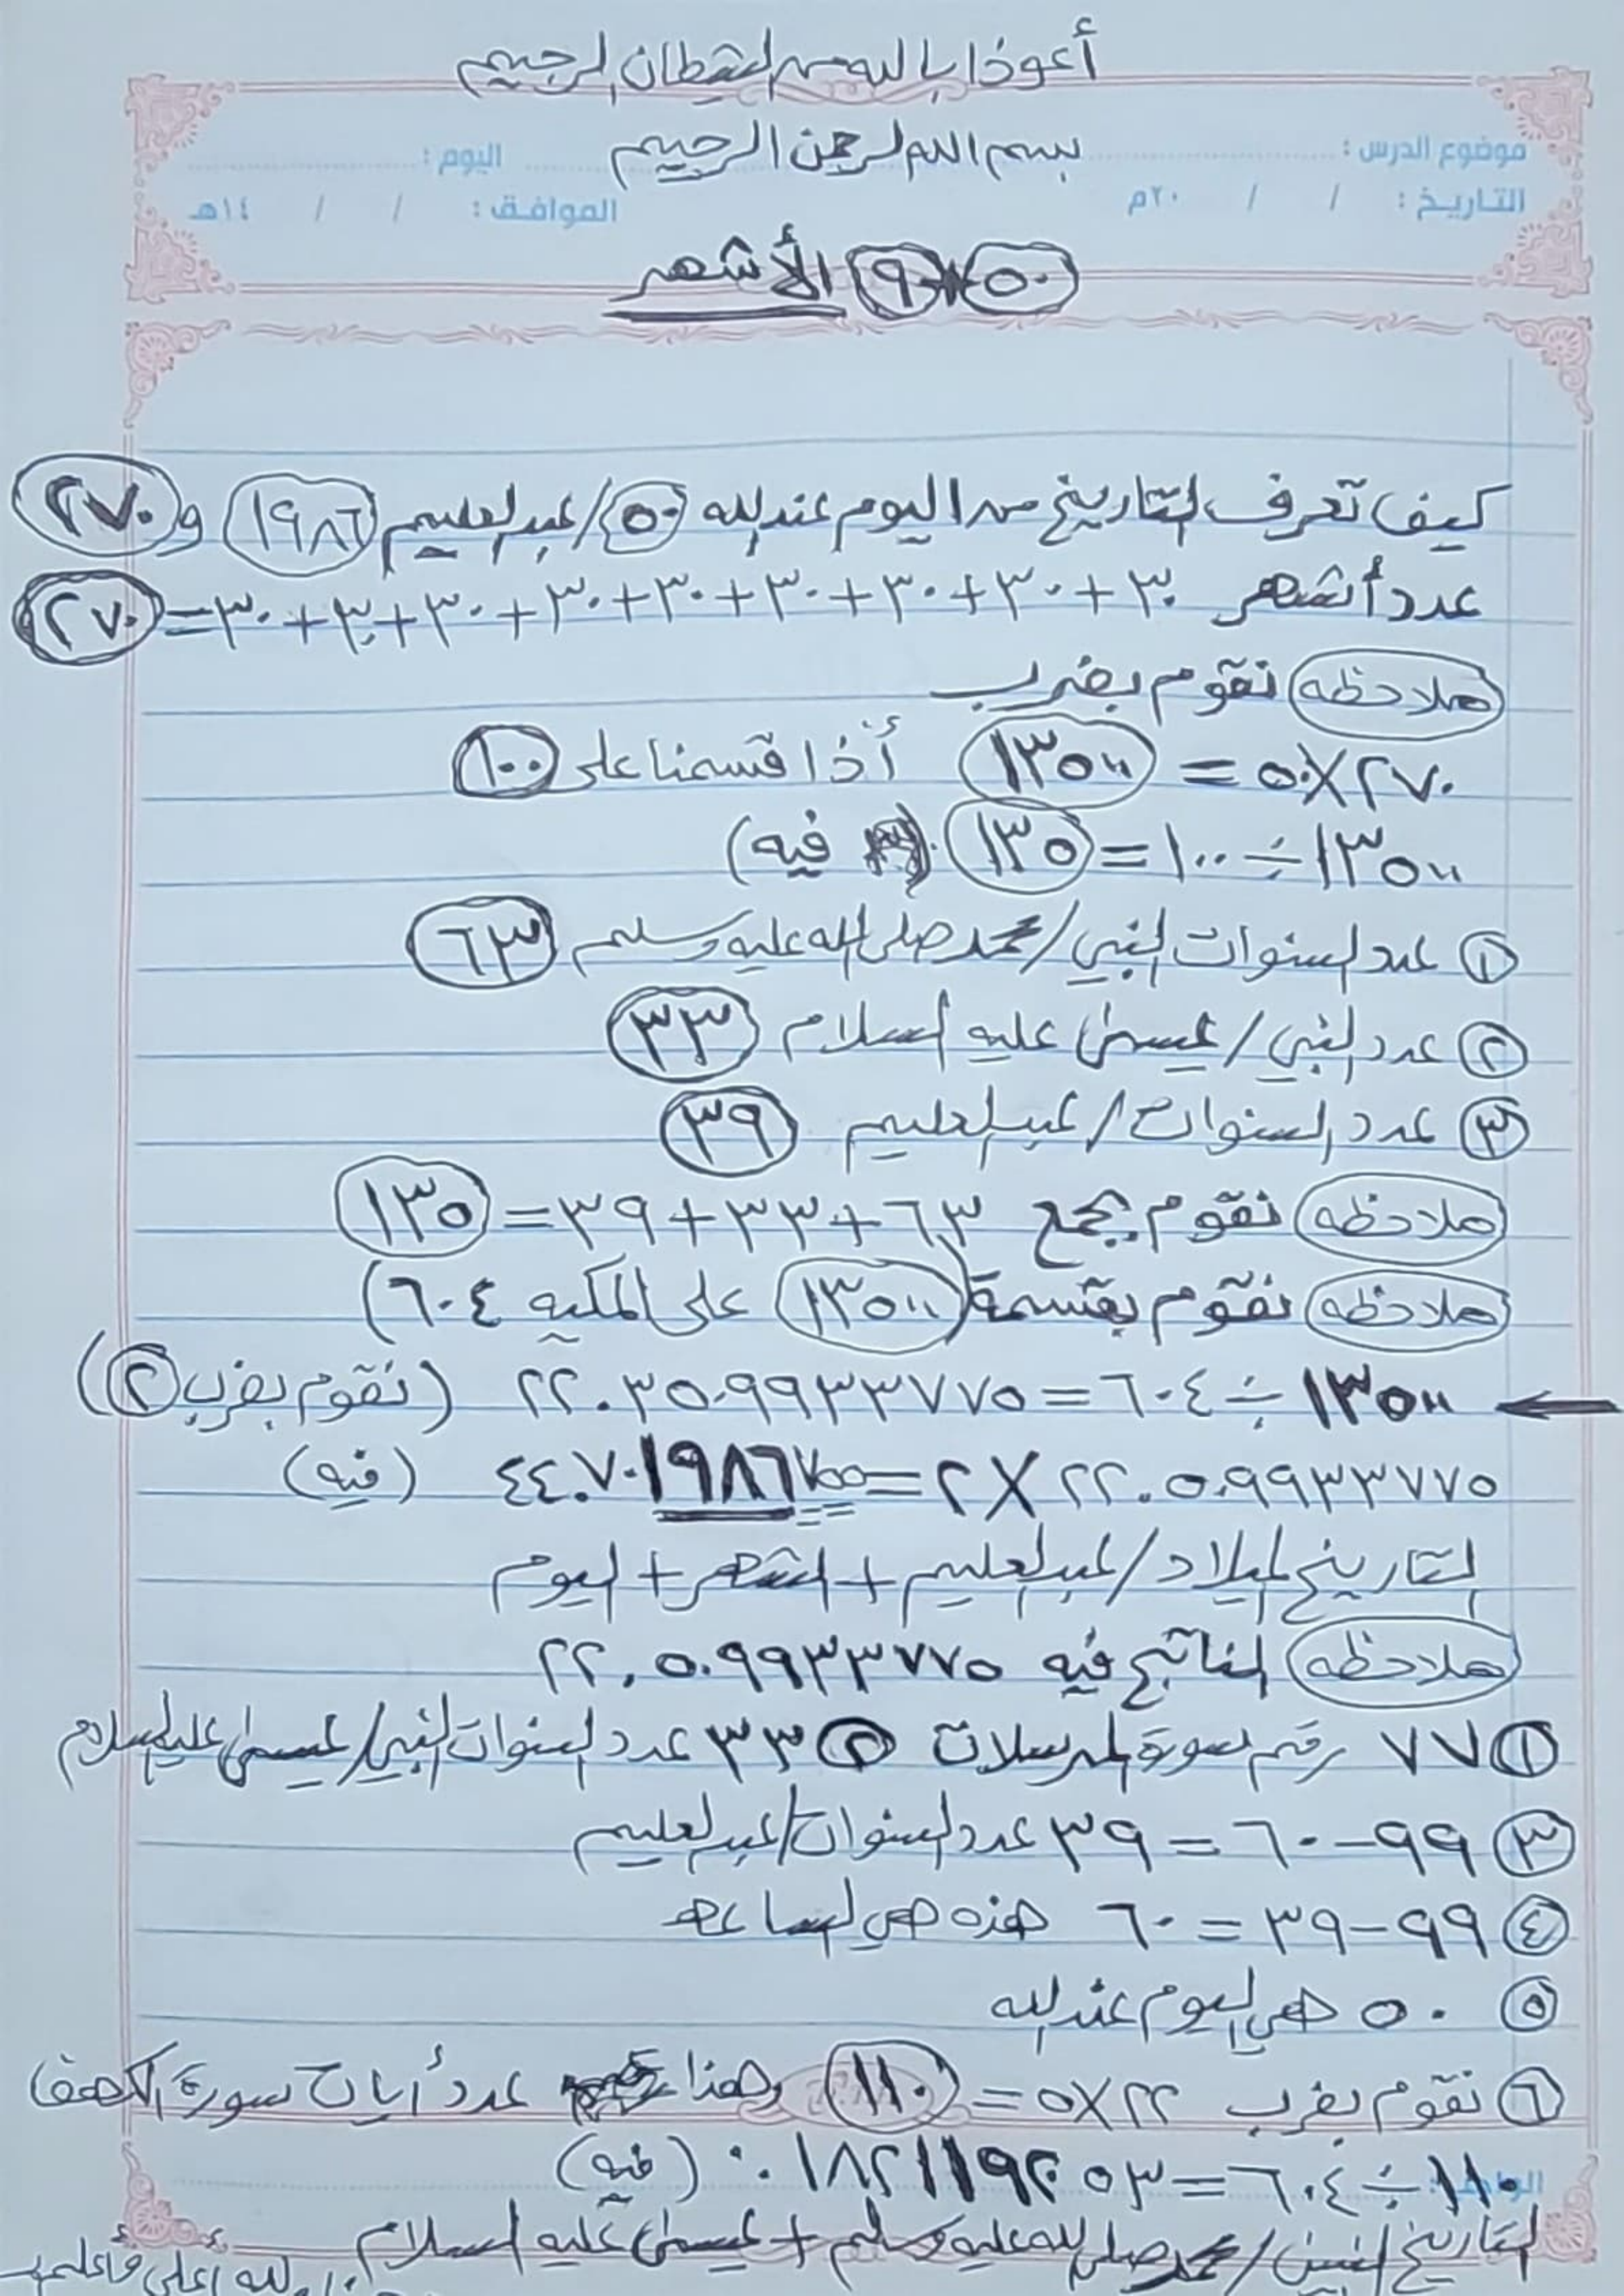 أعوذ بالله من الشيطان الرجيم
بسم الله الرحمن الرحيم
موضوع الدرس : اليوم :
التاريخ : / / ٢٠م الموافق : / / ١٤هـ
٥٠ ٩ الأشهر
كيف تعرف التاريخ من اليوم عند الله ٥٠/عبدالعليم ١٩٨٦ و ٢٧٠
عدد أشهر ٣٠+٣٠+٣٠+٣٠+٣٠+٣٠+٣٠+٣٠+٣٠=٢٧٠
ملاحظه نقوم بضرب
٢٧٠×٥٠ = ١٣٥٠٠ أذا قسمنا على ١٠٠
١٣٥٠٠÷١٠٠=١٣٥ (فيه)
١ عدد السنوات النبي/محمد صلى الله عليه وسلم ٦٣
٢ عدد النبي/عيسى عليه السلام ٣٣
٣ عدد السنوات/عبدالعليم ٣٩
ملاحظه نقوم بجمع ٦٣+٣٣+٣٩=١٣٥
ملاحظه نقوم بقسمة (١٣٥٠٠ على المكيه ٦٠٤)
١٣٥٠٠÷٦٠٤=٢٢.٣٥٠٩٩٣٣٧٧٥ (نقوم بضرب ٢)
٢٢.٥٠٩٩٣٣٧٧٥×٢=٤٤.٧٠١٩٨٦٧٥٥ (فيه)
التاريخ الميلاد/عبدالعليم + الشهر + اليوم
ملاحظه الناتج فيه ٢٢,٥٠٩٩٣٣٧٧٥
١ ٧٧ رقم سورة المرسلات ٢ ٣٣ عدد السنوات النبي/عيسى عليه السلام
٣ ٩٩-٦٠=٣٩ عدد السنوات/عبدالعليم
٤ ٩٩-٣٩=٦٠ هذه هي الساعه
٥ ٥٠ هي اليوم عند الله
٦ نقوم بضرب ٢٢×٥=١١٠ وهذا عدد أيات سورة الكهف
١١٠÷٦٠٤=٠.١٨٢١١٩٢٠٥٣ (فيه)
التاريخ النبيين/محمد صلى الله عليه وسلم + عيسى عليه السلام
الله أعلى وأعلم